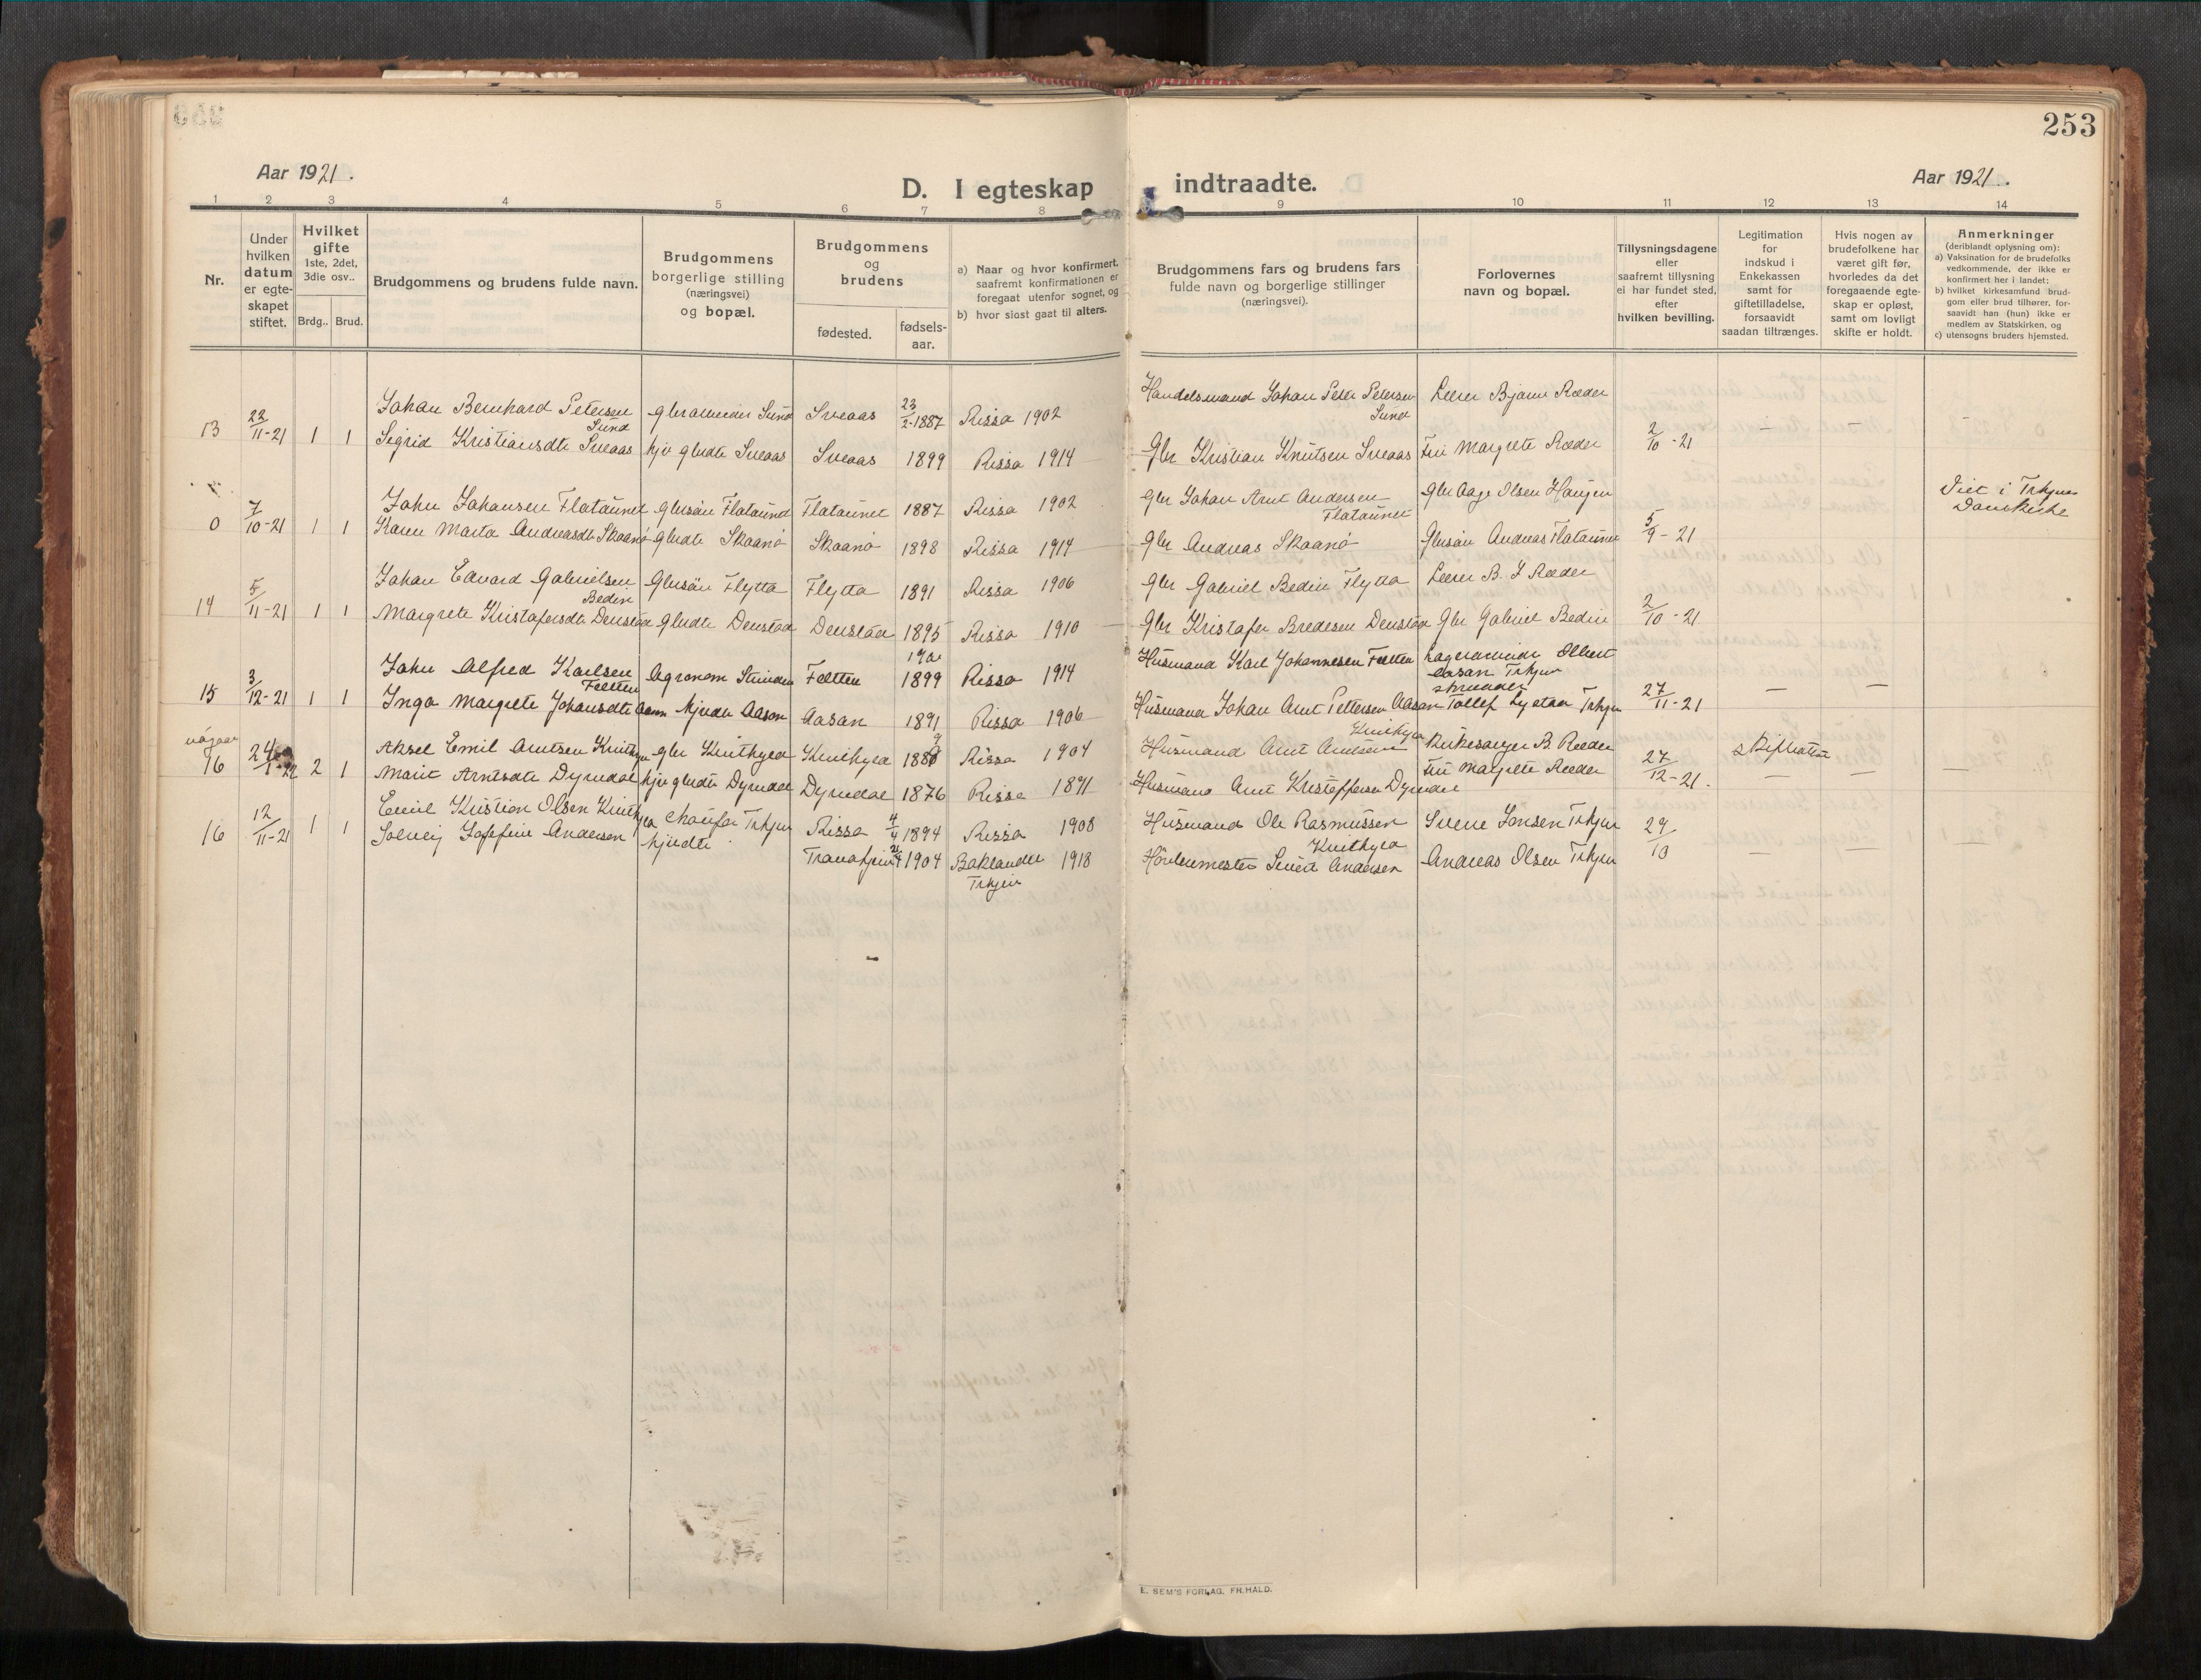 253
Aar 1921.
D. I egteskap indtraadte.
Aar 1921.
1 2 3 4 5 6 7 8 9 10 11 12 13 14
Nr.
Under hvilken datum er egte-skapet stiftet.
Hvilket gifte 1ste, 2det, 3die osv..
Brdg.. Brud.
Brudgommens og brudens fulde navn.
Brudgommens borgerlige stilling (næringsvei) og bopæl.
Brudgommens og brudens
fødested.
fødsels-aar.
a) Naar og hvor konfirmert, saafremt konfirmationen er foregaat utenfor sognet, og
b) hvor sidst gaat til alters.
Brudgommens fars og brudens fars fulde navn og borgerlige stillinger (næringsvei).
Forlovernes navn og bopæl.
Tillysningsdagene eller saafremt tillysning ei har fundet sted, efter hvilken bevilling.
Legitimation for indskud i Enkekassen samt for giftetilladelse, forsaavidt saadan tiltrænges.
Hvis nogen av brudefolkene har været gift før, hvorledes da det foregaaende egte-skap er opløst, samt om lovligt skifte er holdt.
Anmerkninger
(deriblandt oplysning om):
a) Vaksination for de brudefolks vedkommende, der ikke er konfirmert her i landet;
b) hvilket kirkesamfund brud-gom eller brud tilhører, for-saavidt han (hun) ikke er medlem av Statskirken, og
c) utensogns bruders hjemsted.
Johan Bernhard Petersen Sund gbrarbeider Sund Sveaas 23/2-1887 Rissa 1902 Handelsmand Johan Peter Petersen Sund Lærer Bjarne Ræder
13 22/11-21 1 1 Sigrid Kristiansdtr Sveaas hjv gbrdtr Sveaas Sveaas 1899 Rissa 1914 Gbr Kristian Knutsen Sveaas Fru Margrete Ræder 2/10-21 — —
John Johansen Flataunet gbrsøn Flataunet Flataunet 1887 Rissa 1902 gbr Johan Arnt Andersen Flataunet Gbr Aage Olsen Haugen Viet i Trhjms Domkirke
0 7/10-21 1 1 Karen Marta Andreasdtr Skaanø gbrdtr Skaanø Skaanø 1898 Rissa 1914 Gbr Andreas Skaanø Gbrsøn Andreas Flataunet 5/9-21
Johan Edvard Gabrielsen Bedin Gbrsøn Flytta Flytta 1891 Rissa 1906 gbr Gabriel Bedin Flytta Lærer B. J Ræder
14 5/11-21 1 1 Margrete Kristofersdtr Denstad gbrdtr Denstad Denstad 1895 Rissa 1910 Gbr Kristofer Bredesen Denstad Gbr Gabriel Bedin 2/10-21
John Alfred Karlsen Feltten Agronom Feltten 1899 Rissa 1914 Husmand Karl Johannesen Feltten Olbert Aasan Trhjem
15 3/12-21 1 1 Inga Margrete Johansdtr Aasan hjvdtr Aasan Aasan 1891 Rissa 1906 Husmand Johan Arnt Pettersen Aasan skredder Tollef Trhjem 27/11-21 — —
Aksel Emil Arntsen Kvithyld gbr Kvithyld Kvithyld 1889 Rissa 1904 Husmand Arnt Arntsen Kvithyld Kirkesanger B. Ræder Skifteatt
16 24/1-22 2 1 Marit Arntsdtr Dyrndal hjv gbrdtr Dyrndal Dyrndal 1876 Rissa 1891 Husmand Arnt Kristoffersen Dyrndal Fru Margrete Ræder 27/12-21. — —
16 12/11-21 1 1 Emil Kristian Olsen Kvithyld Chaufør Trhjem Rissa 4/4 1894 Rissa 1908 Husmand Ole Rasmussen Kvithyld Sverre Jonsen Trhjem 29/10
Solveig Josefine Andersen hjvdtr Trondhjem 21/4 1904 Baklandet Trhjem 1918 Sivert Andersen Andreas Olsen Trhjem — —
E. SEM'S FORLAG, FR.HALD.